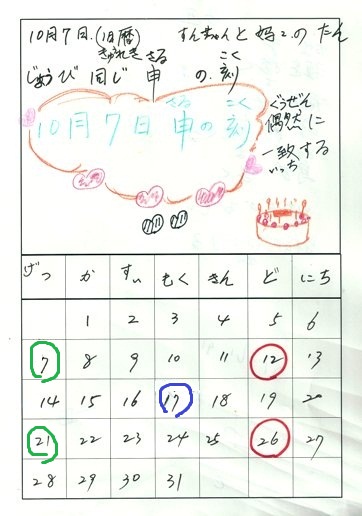 10月7日.(旧暦) すんちゃんと妈2のたん
きゅうれき さる こく
じょうび 同じ 申 の.刻
さる こく
10月7日 申の刻
ぐうぜん
偶然に
一致する
いっち
げつ か すい もく きん ど にち
1 2 3 4 5 6
7 8 9 10 11 12 13
14 15 16 17 18 19 20
21 22 23 24 25 26 27
28 29 30 31